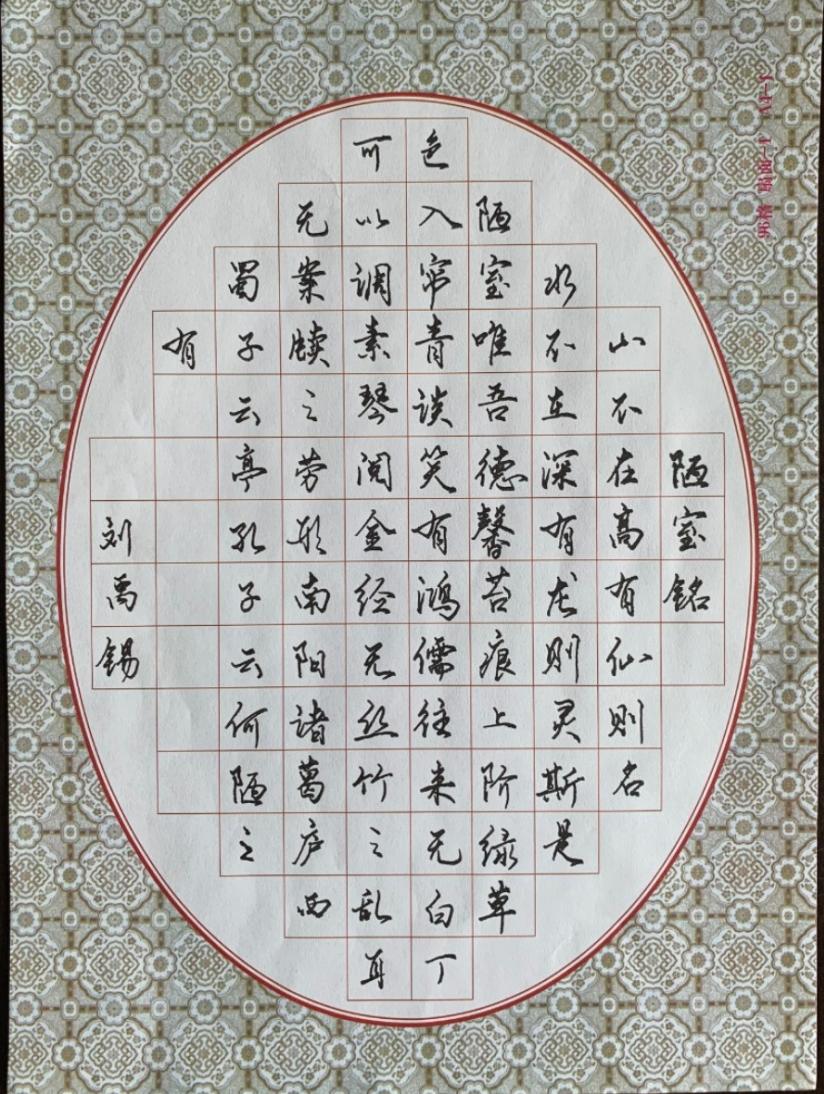 陋室铭
山不在高有仙则名
水不在深有龙则灵斯是
陋室唯吾德馨苔痕上阶绿草
色入帘青谈笑有鸿儒往来无白丁
可以调素琴阅金经无丝竹之乱耳
无案牍之劳形南阳诸葛庐西
蜀子云亭孔子云何陋之
有
刘禹锡